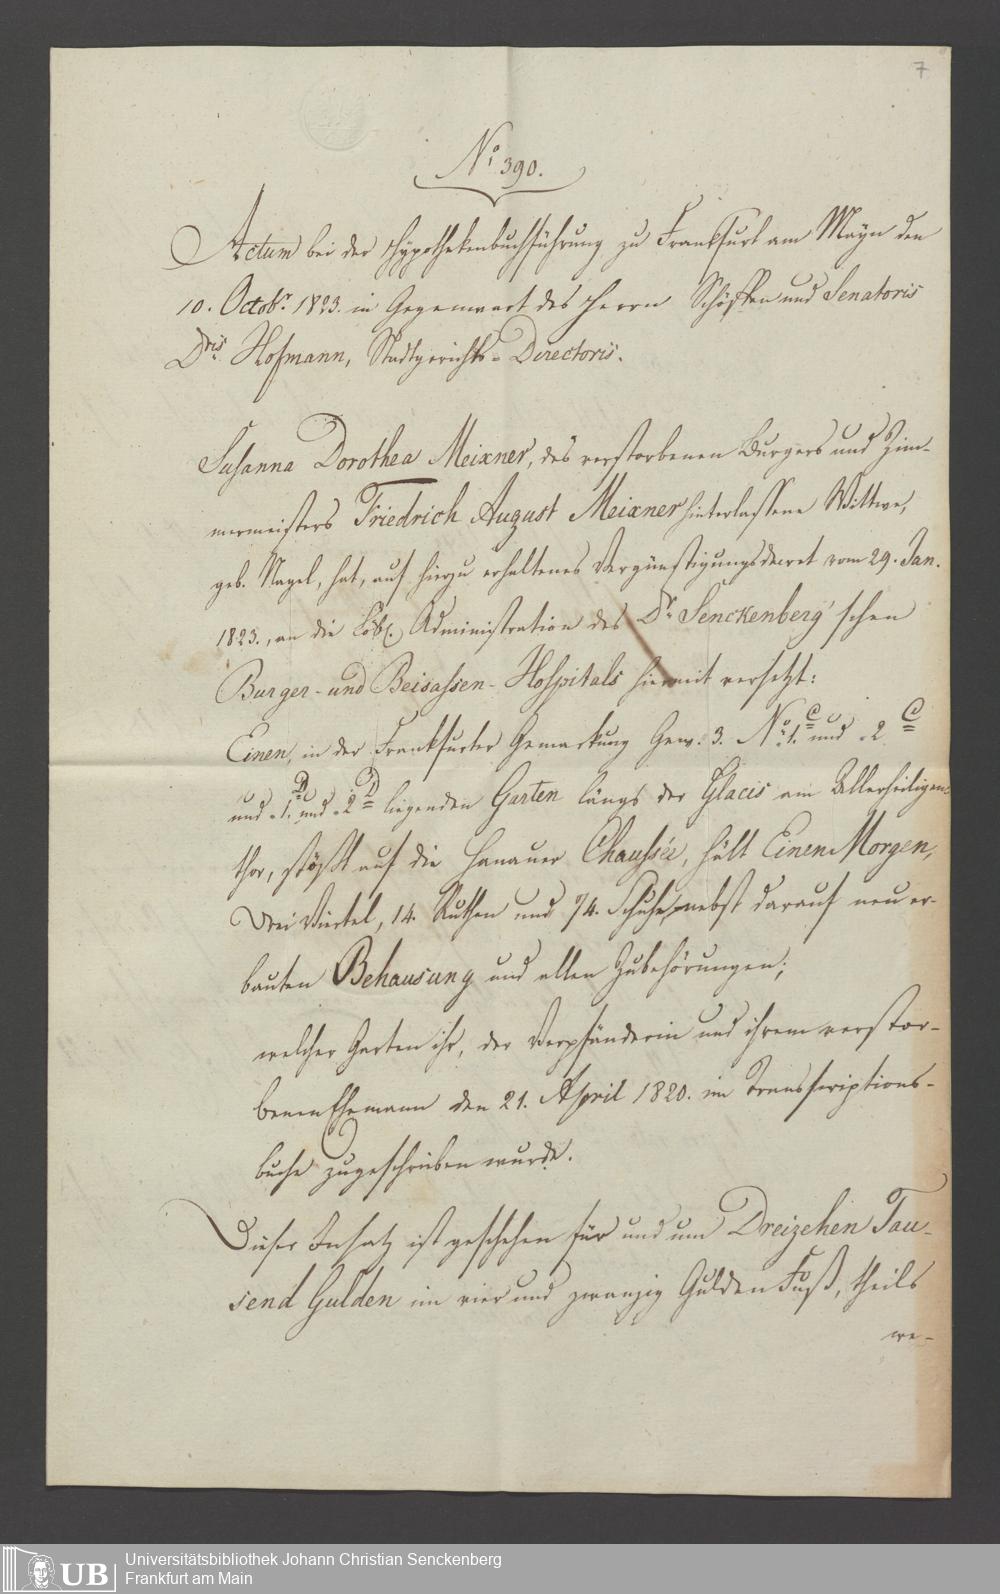 7
No 390.
Actum bei der Hypothekenbuchführung zu Frankfurt am Mayn den
10. Octobr. 1823. in Gegenwart des Herrn Schöffen und Senatoris
Dris. Hofmann, Stadtgerichts-Directoris.
Susanna Dorothea Meixner, des verstorbenen Burgers und Zim-
mermeisters Friedrich August Meixner hinterlassene Wittwe,
geb. Nagel, hat, auf hierzu erhaltenes Vergünstigungsdecret vom 29. Jan.
1823., an die Löbl. Administration des Dr. Senckenberg'schen
Burger- und Beisassen-Hospitals hiermit versetzt:
Einen, in der Frankfurter Gemarkung Gew. 3. No. 1. C und 2 C
und 1. D und 2 D liegenden Garten längs der Glacis am Allerheiligen-
thor, stößt auf die Hanauer Chaussée, hält Einen Morgen,
Drei Viertel, 14. Ruthen und 74. Schuhe, nebst darauf neu er-
bauten Behausung und allen Zubehörungen;
welcher Garten ihr, der Verpfänderin und ihrem verstor-
benen Ehemann den 21. April 1820. im Transscriptions-
buche zugeschrieben wurde.
Dieser Insatz ist geschehen für und um Dreizehen Tau-
send Gulden im vier und zwanzig Gulden Fuß, theils
we-
UB
Universitätsbibliothek Johann Christian Senckenberg
Frankfurt am Main